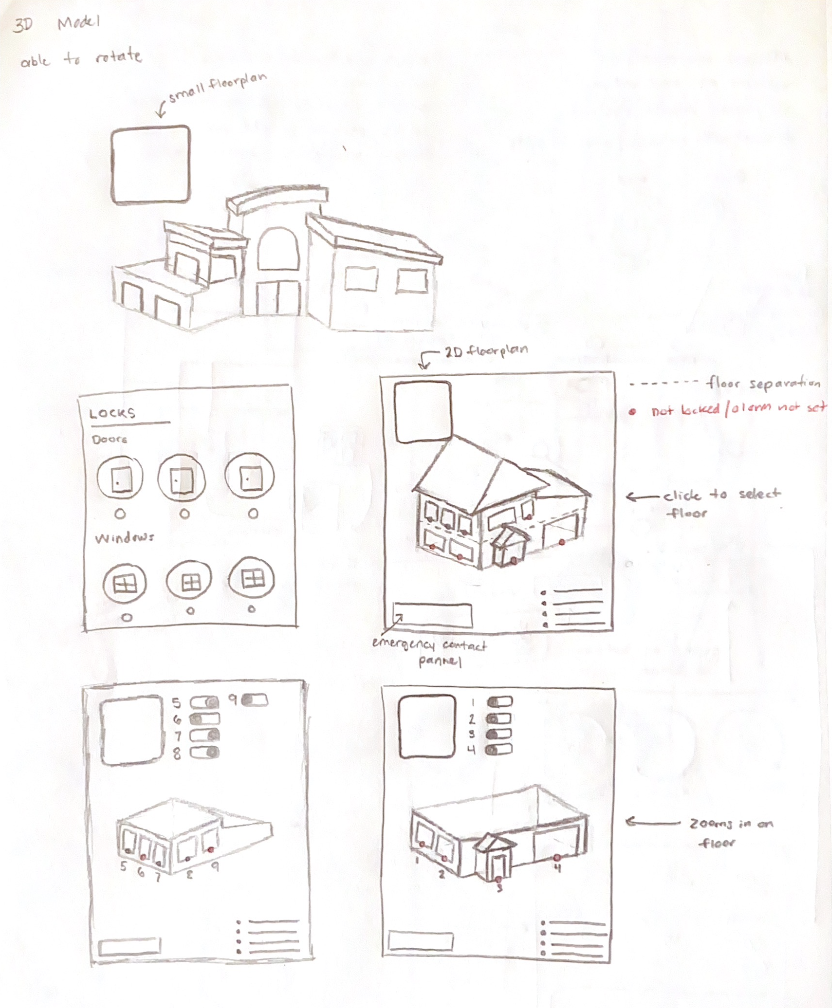 3D Model
able to rotate
small floorplan
2D floorplan
floor separation
not locked/alarm not set
LOCKS
Doors
Windows
click to select
floor
emergency contact
pannel
5
9
6
7
8
1
2
3
4
5
6
7
8
9
1
2
3
4
Zooms in on
floor